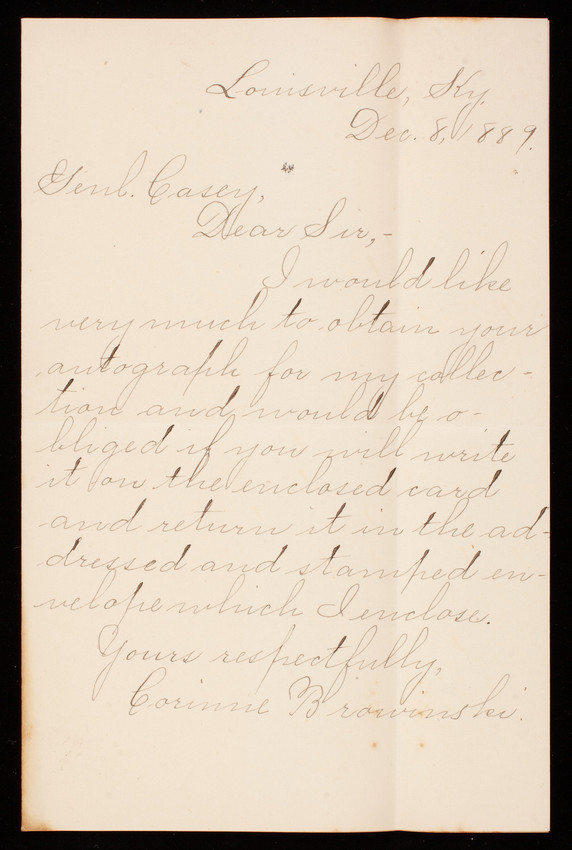 Louisville, Ky.
Dec. 8, 1889.
Genl. Casey,
Dear Sir,-
I would like
very much to obtain your
autograph for my collec-
tion and would be o-
bliged if you will write
it on the enclosed card
and return it in the ad-
dressed and stamped en-
velope which I enclose.
Yours respectfully,
Corinne Browinski.